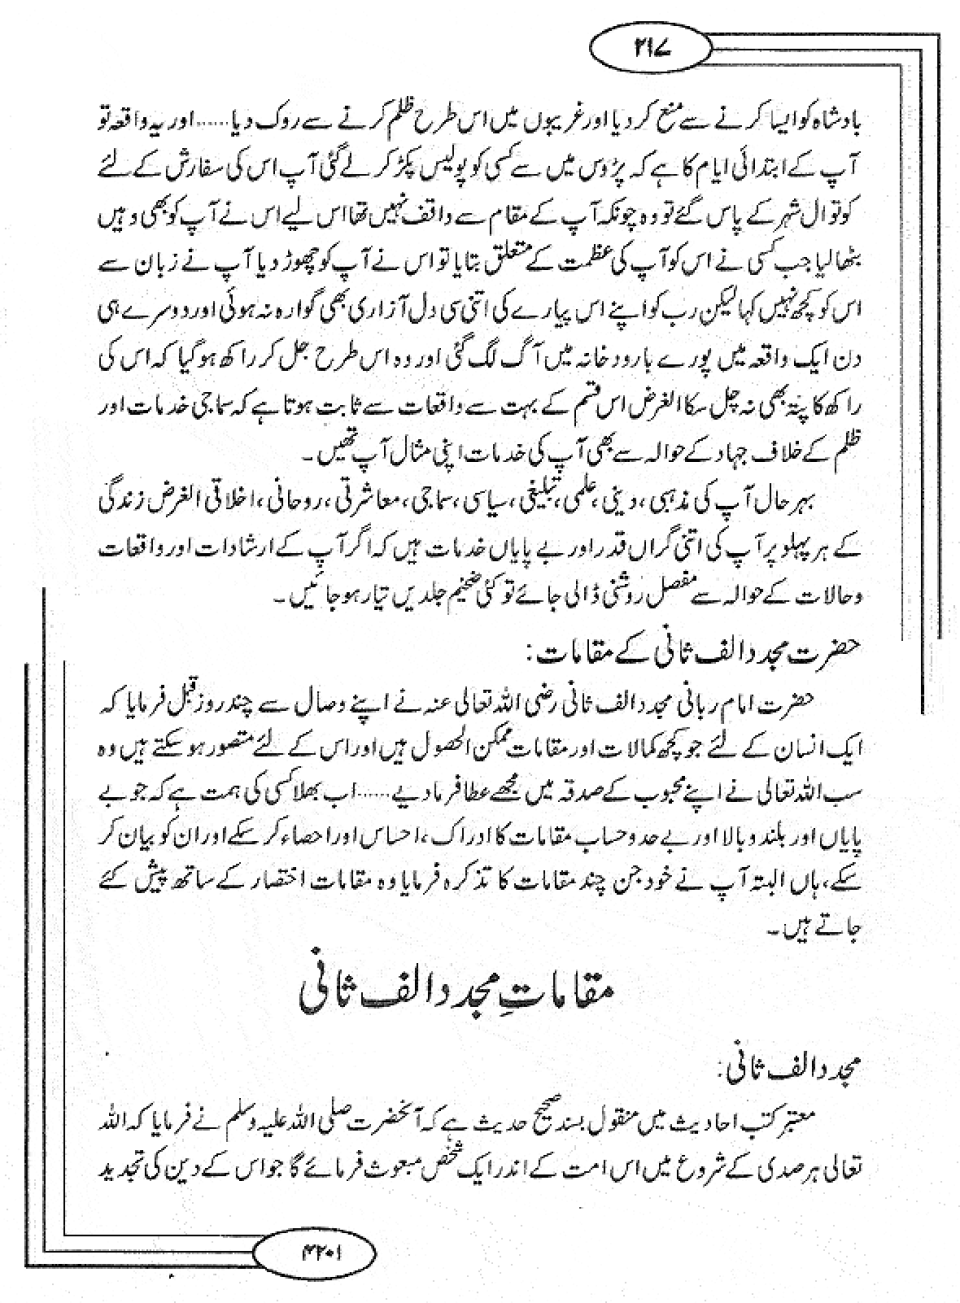 ۲۱۷
بادشاہ کو ایسا کرنے سے منع کر دیا اور غریبوں میں اس طرح ظلم کرنے سے روک دیا......اور یہ واقعہ تو
آپ کے ابتدائی ایام کا ہے کہ پڑوس میں سے کسی کو پولیس پکڑ کر لے گئی آپ اس کی سفارش کے لئے
کوتوال شہر کے پاس گئے تو وہ چونکہ آپ کے مقام سے واقف نہیں تھا اس لیے اس نے آپ کو بھی وہیں
بٹھا لیا جب کسی نے اس کو آپ کی عظمت کے متعلق بتایا تو اس نے آپ کو چھوڑ دیا آپ نے زبان سے
اس کو کچھ نہیں کہا لیکن رب کو اپنے اس پیارے کی اتنی سی دل آزاری بھی گوارہ نہ ہوئی اور دوسرے ہی
دن ایک واقعہ میں پورے بارود خانہ میں آگ لگ گئی اور وہ اس طرح جل کر راکھ ہو گیا کہ اس کی
راکھ کا پتہ بھی نہ چل سکا الغرض اس قسم کے بہت سے واقعات سے ثابت ہوتا ہے کہ سماجی خدمات اور
ظلم کے خلاف جہاد کے حوالہ سے بھی آپ کی خدمات اپنی مثال آپ تھیں۔
بہر حال آپ کی مذہبی، دینی، علمی، تبلیغی، سیاسی، سماجی، معاشرتی، روحانی، اخلاقی الغرض زندگی
کے ہر پہلو پر آپ کی اتنی گراں قدر اور بے پایاں خدمات ہیں کہ اگر آپ کے ارشادات اور واقعات
وحالات کے حوالہ سے مفصل روشنی ڈالی جائے تو کئی ضخیم جلدیں تیار ہو جائیں۔
حضرت مجدد الف ثانی کے مقامات:
حضرت امام ربانی مجدد الف ثانی رضی اللہ تعالی عنہ نے اپنے وصال سے چند روز قبل فرمایا کہ
ایک انسان کے لئے جو کچھ کمالات اور مقامات ممکن الحصول ہیں اور اس کے لئے متصور ہو سکتے ہیں وہ
سب اللہ تعالی نے اپنے محبوب کے صدقہ میں مجھے عطا فرما دیے......اب بھلا کسی کی ہمت ہے کہ جو بے
پایاں اور بلند و بالا اور بے حد و حساب مقامات کا ادراک، احساس اور احصاء کر سکے اور ان کو بیان کر
سکے، ہاں البتہ آپ نے خود جن چند مقامات کا تذکرہ فرمایا وہ مقامات اختصار کے ساتھ پیش کئے
جاتے ہیں۔
مقاماتِ مجدد الف ثانی
مجدد الف ثانی:
معتبر کتب احادیث میں منقول بسند صحیح حدیث ہے کہ آنحضرت صلی اللہ علیہ وسلم نے فرمایا کہ اللہ
تعالی ہر صدی کے شروع میں اس امت کے اندر ایک شخص مبعوث فرمائے گا جو اس کے دین کی تجدید
۴۲۰۱